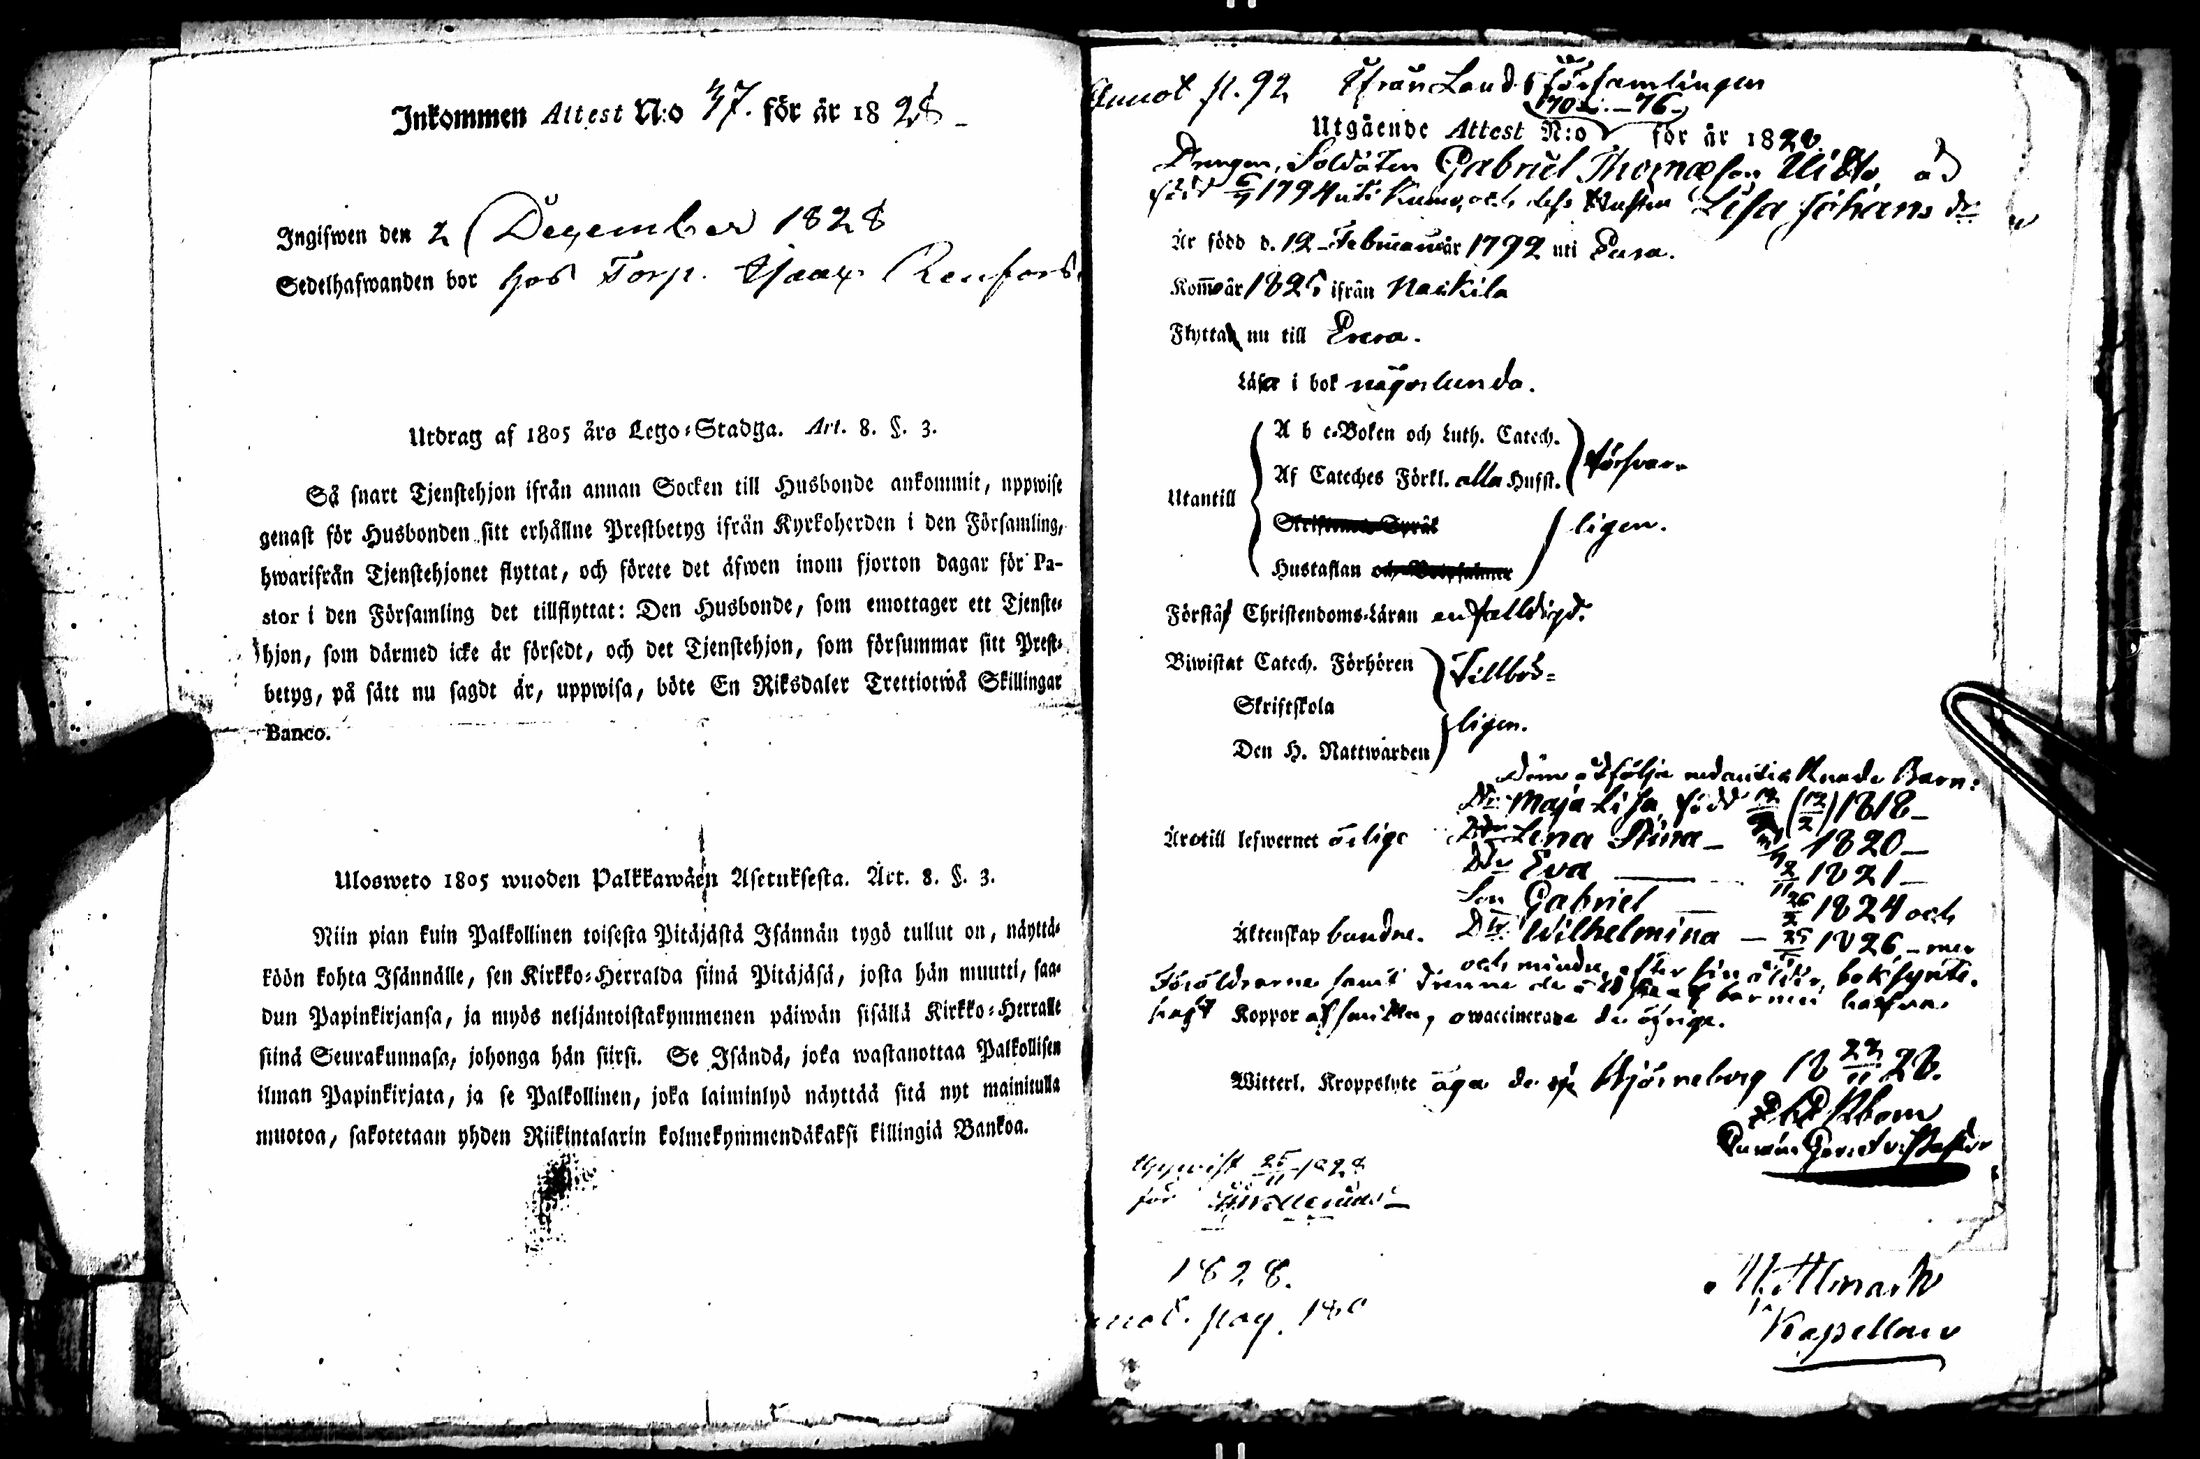 Inkommen Attest N:o 37. för år 1828
Ingifwen den 2 December 1828
Sedelhafwanden bor hos Torp. Isaac Renfors
Utdrag af 1805 års Lego-Stadga. Art. 8. §. 3.
Så snart Tjenstehjon ifrån annan Socken till Husbonde ankommit, uppwise
genast för Husbonden sitt erhållne Prestbetyg ifrån Kyrkoherden i den Församling,
hwarifrån Tjenstehjonet flyttat, och förete det äfwen inom fjorton dagar för Pa-
stor i den Församling det tillflyttat: Den Husbonde, som emottager ett Tjenste-
hjon, som därmed icke är försedt, och det Tjenstehjon, som försummar sitt Prest-
betyg, på sätt nu sagdt är, uppwisa, böte En Riksdaler Trettiotwå Skillingar
Banco.
Ulosweto 1805 wuoden Palkkawäen Asetuksesta. Art. 8. §. 3.
Niin pian kuin Palkollinen toisesta Pitäjästä Isännän tygö tullut on, näyttä-
köön kohta Isännälle, sen Kirkko-Herralda siinä Pitäjäsä, josta hän muutti, saa-
dun Papinkirjansa, ja myös neljäntoistakymmenen päiwän sisällä Kirkko-Herralle
siinä Seurakunnasa, johonga hän siirsi. Se Isändä, joka wastanottaa Palkollisen
ilman Papinkirjata, ja se Palkollinen, joka laiminlyö näyttää sitä nyt mainitulla
muotoa, sakotetaan yhden Riikintalarin kolmekymmendäkaksi killingiä Bankoa.
Annot p. 92 Ifrån Lands Församlingen
Utgående Attest N:o 76 för år 1828
Drengen, Soldaten Gabriel Thomæson
född 1794 uti Kumo, och dess Hustru Lisa Johans dr
Är född d. 12 Februarii år 1792 uti Eura.
Kommo år 1825 ifrån Nakkila
Flytta nu till Eura.
Läsa i bok någorlunda.
Utantill
A b c-Boken och Luth. Catech.
Af Cateches Förkl. alla Hufst.
försvar-
Skriftenes Språk
ligen.
Hustaflan
Förstå Christendoms-Läran enfalldigt.
Biwistat Catech. Förhören
Tillbör-
Skriftskola
Den H. Nattwarden
ligen.
Dem åtfölja nedanteknade Barn:
Dr Maja Lisa född 1818
Äro till lefwernet ärlige Dr Lena Stina 1820
Dr Eva 1821
Son Gabriel 1824 och
Äktenskap bundne. Dr Wilhelmina 1826
Föräldrarne samt
haft Koppor owaccinerade de öfrige.
Witterl. Kroppslyte äga de ej Björneborg 18 22/11 28.
Uppvist 25/11 1828
för
1828.
pag. 180
Kapellan